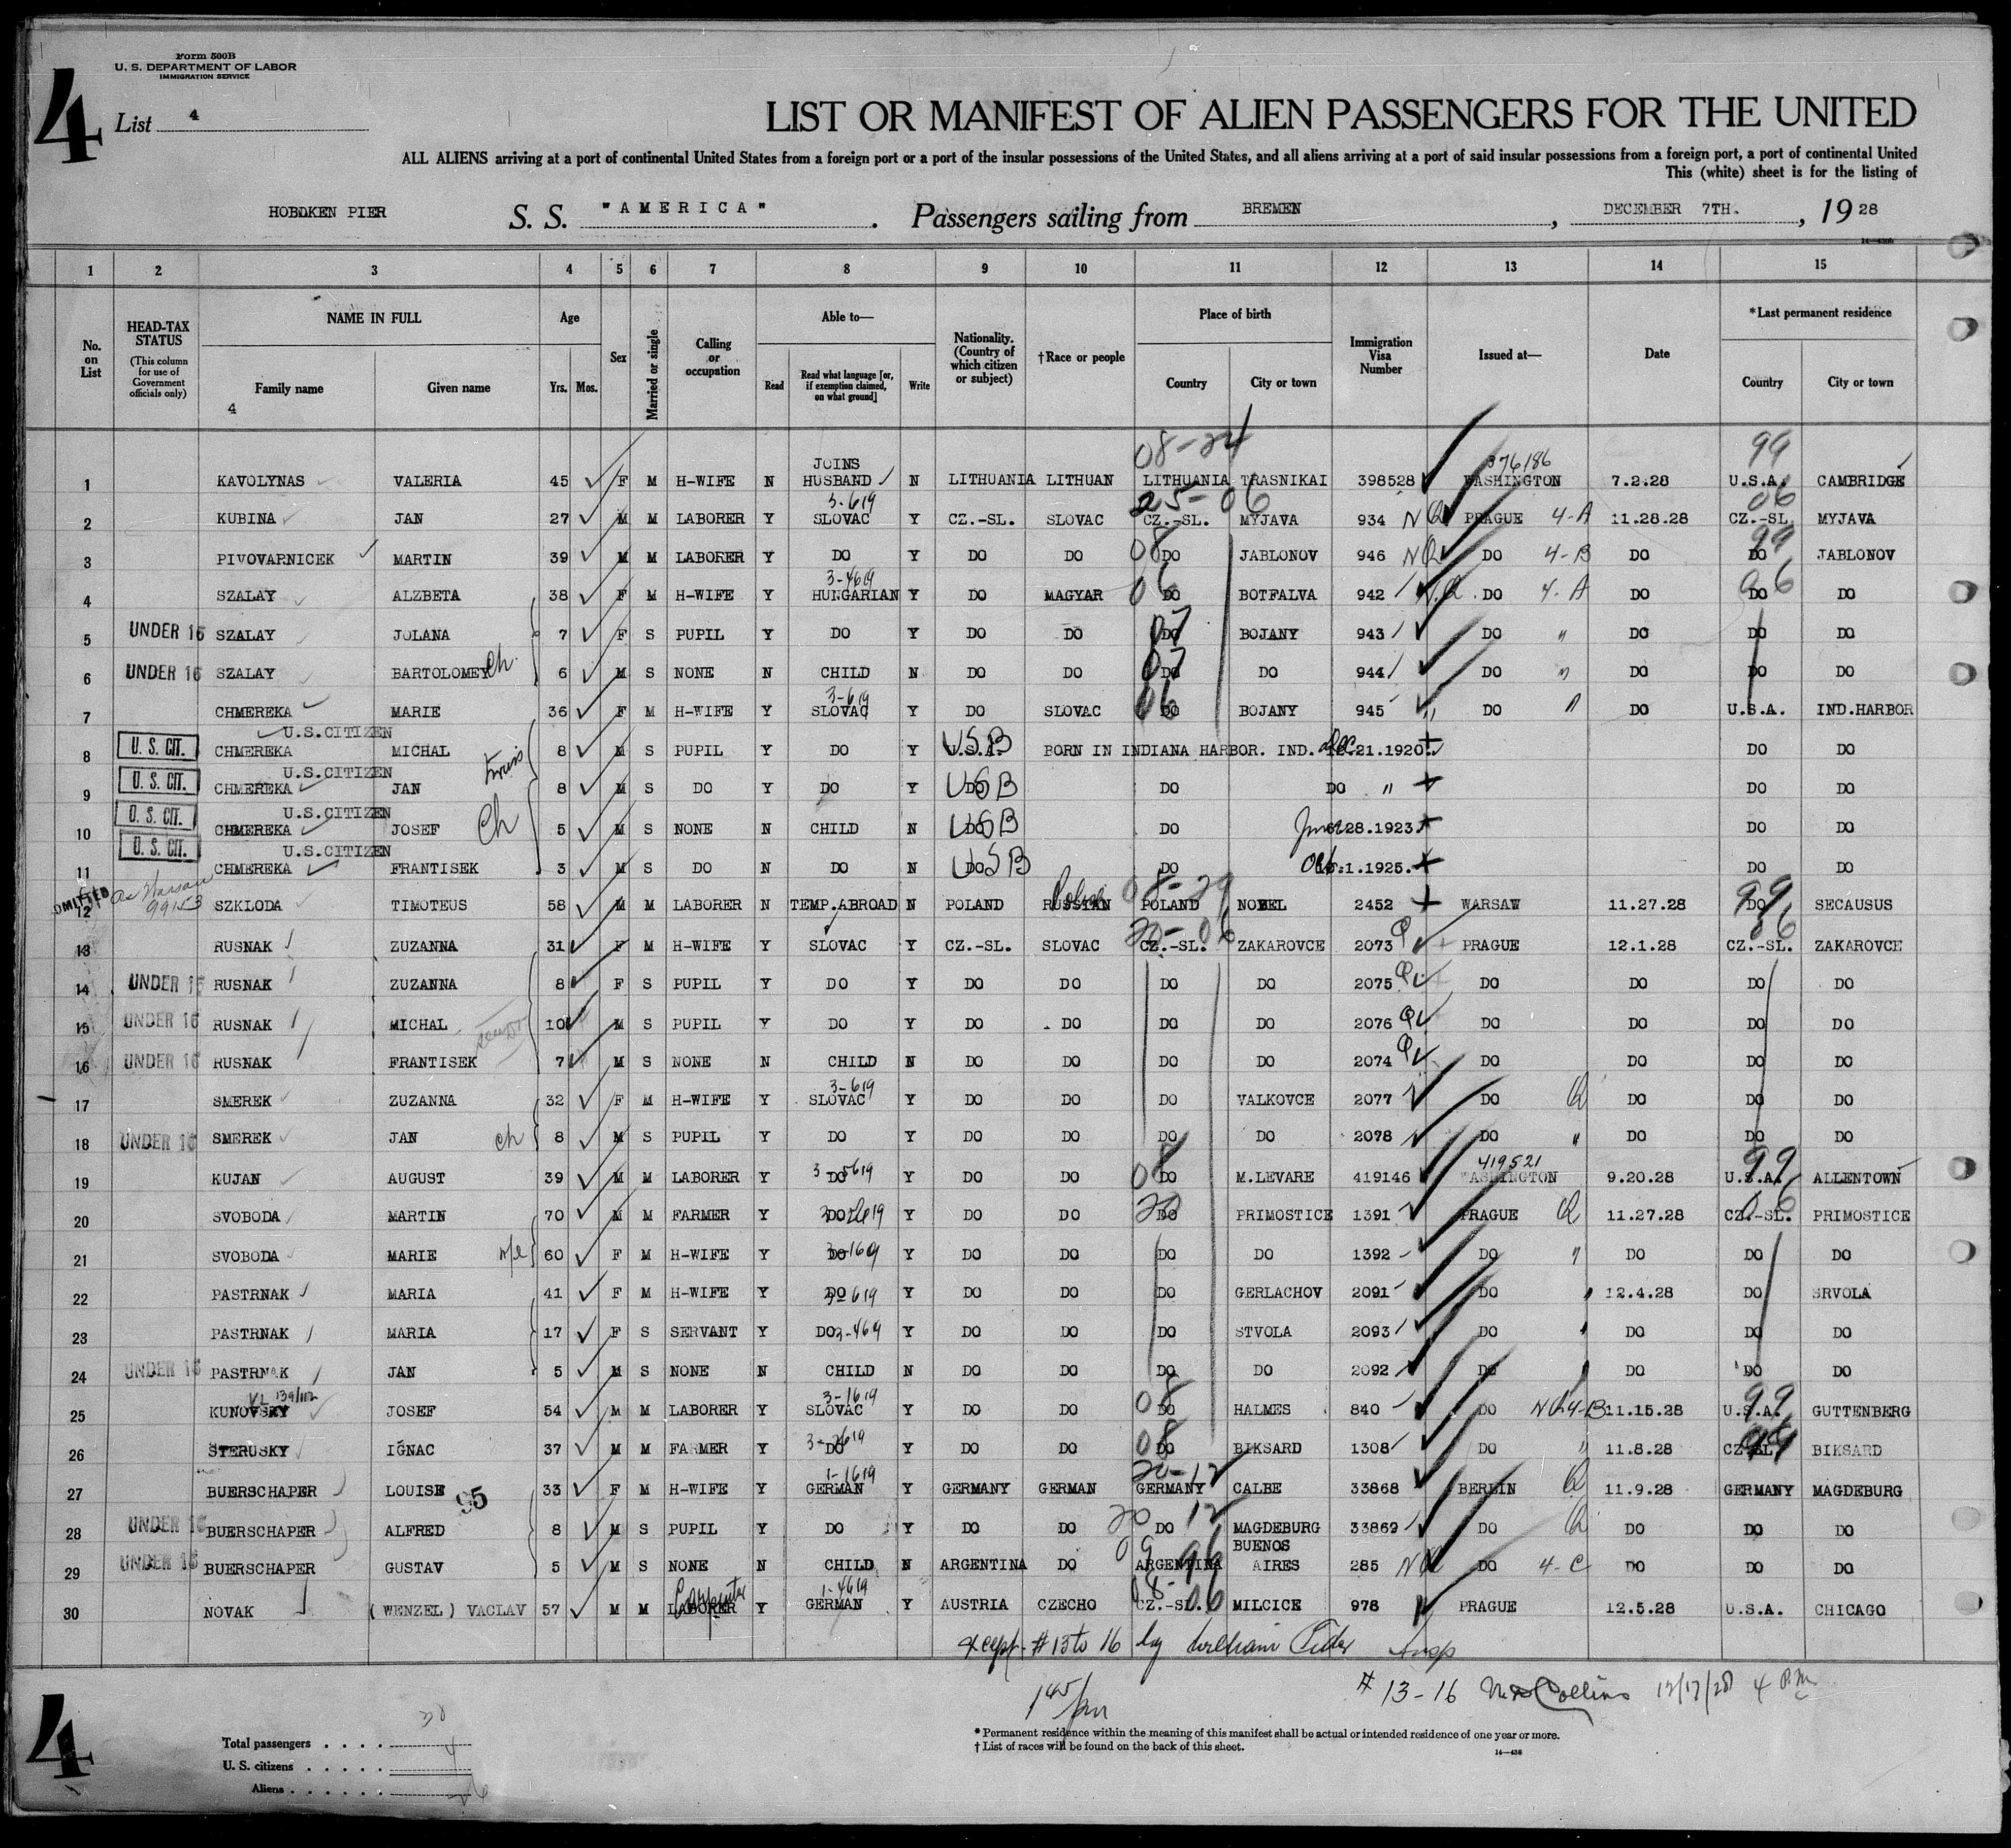 Form 500B
U. S. DEPARTMENT OF LABOR
IMMIGRATION SERVICE
4
List 4
LIST OR MANIFEST OF ALIEN PASSENGERS FOR THE UNITED
ALL ALIENS arriving at a port of continental United States from a foreign port or a port of the insular possessions of the United States, and all aliens arriving at a port of said insular possessions from a foreign port, a port of continental United
This (white) sheet is for the listing of
HOBOKEN PIER S. S. "AMERICA" . Passengers sailing from BREMEN , DECEMBER 7TH. , 19 28
1 2 3 4 5 6 7 8 9 10 11 12 13 14 15
No. on List
HEAD-TAX STATUS (This column for use of Government officials only)
NAME IN FULL Family name Given name
4
Age Yrs. Mos.
Sex
Married or single
Calling or occupation
Able to— Read Read what language [or, if exemption claimed, on what ground] Write
Nationality. (Country of which citizen or subject)
†Race or people
Place of birth Country City or town
Immigration Visa Number
Issued at—
Date
*Last permanent residence Country City or town
08-24 99
JOINS 376186
1 KAVOLYNAS VALERIA 45 F M H-WIFE N HUSBAND N LITHUANIA LITHUAN LITHUANIA TRASNIKAI 398528 WASHINGTON 7.2.28 U.S.A. CAMBRIDGE
3-619 25-06 06
2 KUBINA JAN 27 M M LABORER Y SLOVAC Y CZ.-SL. SLOVAC CZ.-SL. MYJAVA 934 NQ PRAGUE 4-A 11.28.28 CZ.-SL. MYJAVA
3 PIVOVARNICEK MARTIN 39 M M LABORER Y DO Y DO DO 08 DO JABLONOV 946 NQ DO 4-B DO 99 DO JABLONOV
3-4619
4 SZALAY ALZBETA 38 F M H-WIFE Y HUNGARIAN Y DO MAGYAR 06 DO BOTFALVA 942 N.Q. DO 4-A DO 06 DO DO
5 UNDER 16 SZALAY JOLANA 7 F S PUPIL Y DO Y DO DO 07 DO BOJANY 943 DO " DO DO DO
6 UNDER 16 SZALAY BARTOLOMEY ch. 6 M S NONE N CHILD N DO DO 07 DO DO 944 DO " DO DO DO
3-619
7 CHMEREKA MARIE 36 F M H-WIFE Y SLOVAC Y DO SLOVAC 06 DO BOJANY 945 " DO " DO U.S.A. IND.HARBOR
U.S.CITIZEN
8 U. S. CIT. CHMEREKA MICHAL twins 8 M S PUPIL Y DO Y USB BORN IN INDIANA HARBOR. IND. Dec 21.1920. DO DO
U.S.CITIZEN
9 U. S. CIT. CHMEREKA JAN 8 M S DO Y DO Y DO USB DO DO " DO DO
U.S.CITIZEN
10 U. S. CIT. CHMEREKA JOSEF Ch 5 M S NONE N CHILD N DO USB DO June 28.1923. DO DO
U.S.CITIZEN
11 U. S. CIT. CHMEREKA FRANTISEK 3 M S DO N DO N DO USB DO Oct 1.1925. DO DO
OMITTED 99153 Polish 08-29 99
12 SZKLODA TIMOTEUS 58 M M LABORER N TEMP.ABROAD N POLAND RUSSIAN POLAND NOBEL 2452 WARSAW 11.27.28 DO SECAUSUS
20-06 06
13 RUSNAK ZUZANNA 31 F M H-WIFE Y SLOVAC Y CZ.-SL. SLOVAC CZ.-SL. ZAKAROVCE 2073 Q PRAGUE 12.1.28 CZ.-SL. ZAKAROVCE
14 UNDER 16 RUSNAK ZUZANNA 8 F S PUPIL Y DO Y DO DO DO DO 2075 Q DO DO DO DO
15 UNDER 16 RUSNAK MICHAL 10 M S PUPIL Y DO Y DO DO DO DO 2076 Q DO DO DO DO
16 UNDER 16 RUSNAK FRANTISEK 7 M S NONE N CHILD N DO DO DO DO 2074 Q DO DO DO DO
3-619
17 SMEREK ZUZANNA 32 F M H-WIFE Y SLOVAC Y DO DO DO VALKOVCE 2077 DO Q DO DO DO
18 UNDER 16 SMEREK JAN ch 8 M S PUPIL Y DO Y DO DO DO DO 2078 DO " DO DO DO
419521 99
19 KUJAN AUGUST 39 M M LABORER Y DO Y DO DO 08 DO M.LEVARE 419146 WASHINGTON 9.20.28 U.S.A. ALLENTOWN
20 SVOBODA MARTIN 70 M M FARMER Y DO Y DO DO 20 DO PRIMOSTICE 1391 PRAGUE Q 11.27.28 06 CZ.-SL. PRIMOSTICE
21 SVOBODA MARIE 60 F M H-WIFE Y DO Y DO DO DO DO 1392 DO " DO DO DO
22 PASTRNAK MARIA 41 F M H-WIFE Y DO Y DO DO DO GERLACHOV 2091 DO 12.4.28 DO SRVOLA
23 PASTRNAK MARIA 17 F S SERVANT Y DO 3-469 Y DO DO DO STVOLA 2093 DO DO DO DO
24 UNDER 16 PASTRNAK JAN 5 M S NONE N CHILD N DO DO DO DO 2092 DO DO DO DO
3-1619
25 KUNOVSKY JOSEF 54 M M LABORER Y SLOVAC Y DO DO 08 DO HALMES 840 DO NQ 4-B 11.15.28 99 U.S.A. GUTTENBERG
26 STERUSKY IGNAC 37 M M FARMER Y DO Y DO DO 08 DO BIKSARD 1308 DO " 11.8.28 CZ.-SL. BIKSARD
1-1619 20-12
27 BUERSCHAPER LOUISE 95 33 F M H-WIFE Y GERMAN Y GERMANY GERMAN GERMANY CALBE 33868 BERLIN Q 11.9.28 GERMANY MAGDEBURG
28 UNDER 16 BUERSCHAPER ALFRED 8 M S PUPIL Y DO Y DO DO 20 12 DO MAGDEBURG 33869 DO Q DO DO DO
BUENOS
29 UNDER 16 BUERSCHAPER GUSTAV 5 M S NONE N CHILD N ARGENTINA DO 09 96 ARGENTINA AIRES 285 NQ DO 4-C DO DO DO
Carpenter 1-4619 08-06
30 NOVAK (WENZEL) VACLAV 57 M M LABORER Y GERMAN Y AUSTRIA CZECHO CZ.-SL. MILCICE 978 PRAGUE 12.5.28 U.S.A. CHICAGO
except #13 to 16 by William Insp
# 13-16 Collins 12/17/28 4 P.M.
* Permanent residence within the meaning of this manifest shall be actual or intended residence of one year or more.
† List of races will be found on the back of this sheet.
14—436
4
Total passengers . . . .
U. S. citizens . . . . . 4
Aliens . . . . . . . 26